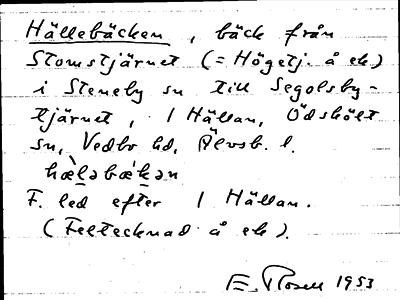 Hällebäcken, bäck från
Stomstjärnet (= Högetj. å ek)
i Steneby sn till Segolsby-
tjärnet, 1 Hällan, Ödskölt
sn, Vedbo hd, Älvsb. l.
hæ̀lǝbæ̀kǝn
F. led efter 1 Hällan.
(Feltecknad å ek).
E. Rosell 1953